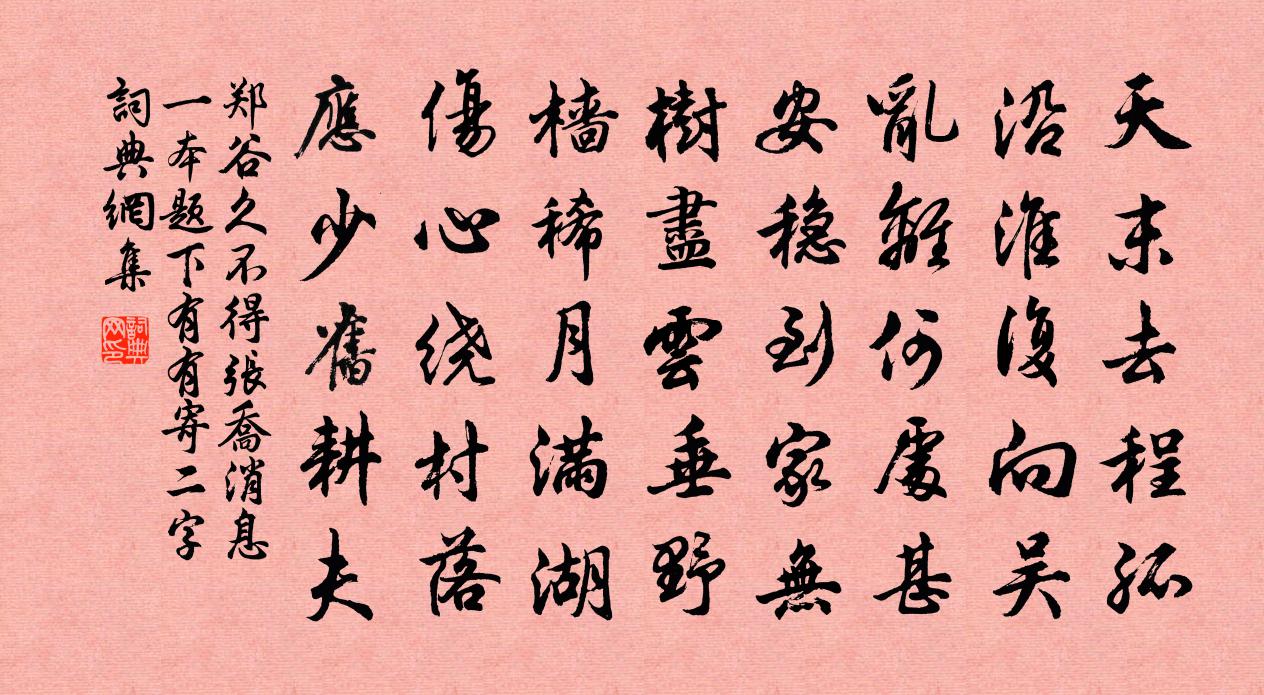 天末去程孤
沿淮復向吴
亂離何處甚
安穩到家無
樹盡雲垂野
檣稀月满湖
傷心绕村落
應少舊耕夫
郑谷久不得張喬消息
一本题下有有寄二字
詞典網集
詞典网印